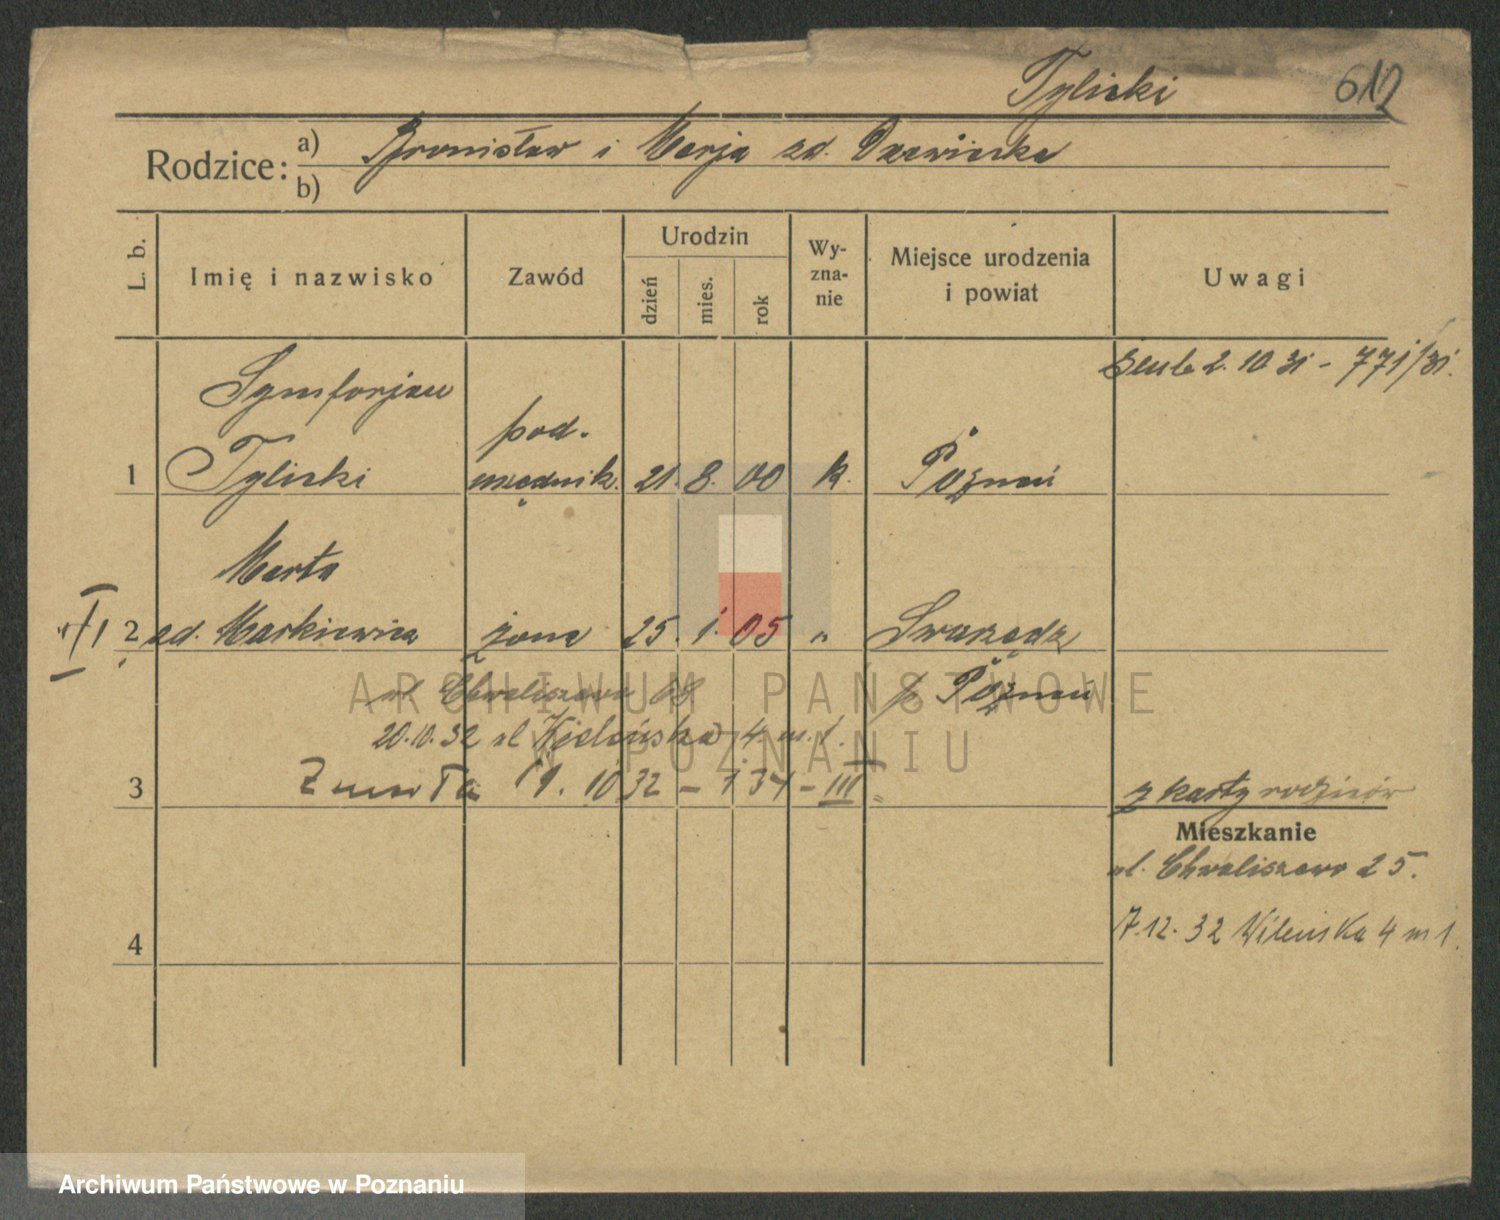 Tylicki 612
Rodzice: a) Bronisław i Marja zd. Dzawiecka
b)
L. b. Imię i nazwisko Zawód Urodzin dzień mies. rok Wyznanie Miejsce urodzenia i powiat Uwagi
ślub 2. 10 31 - 771/31.
Symforjan
pod-
1 Tylicki urzędnik. 21. 8. 00 k. Poznań
Marta
2 zd. Markiewicz żona 25. 1. 05 " Swarzędz
ul. Chwaliszewo 68 p. Poznań
20.10.32 ul 4. m. 1.
3 Zmarła 19. 10 32 - 1734 - III z karty rodziców
Mieszkanie
ul. Chwaliszewo 25.
4 7.12.32 Wileńska 4 m 1.
ARCHIWUM PAŃSTWOWE
W POZNANIU
Archiwum Państwowe w Poznaniu